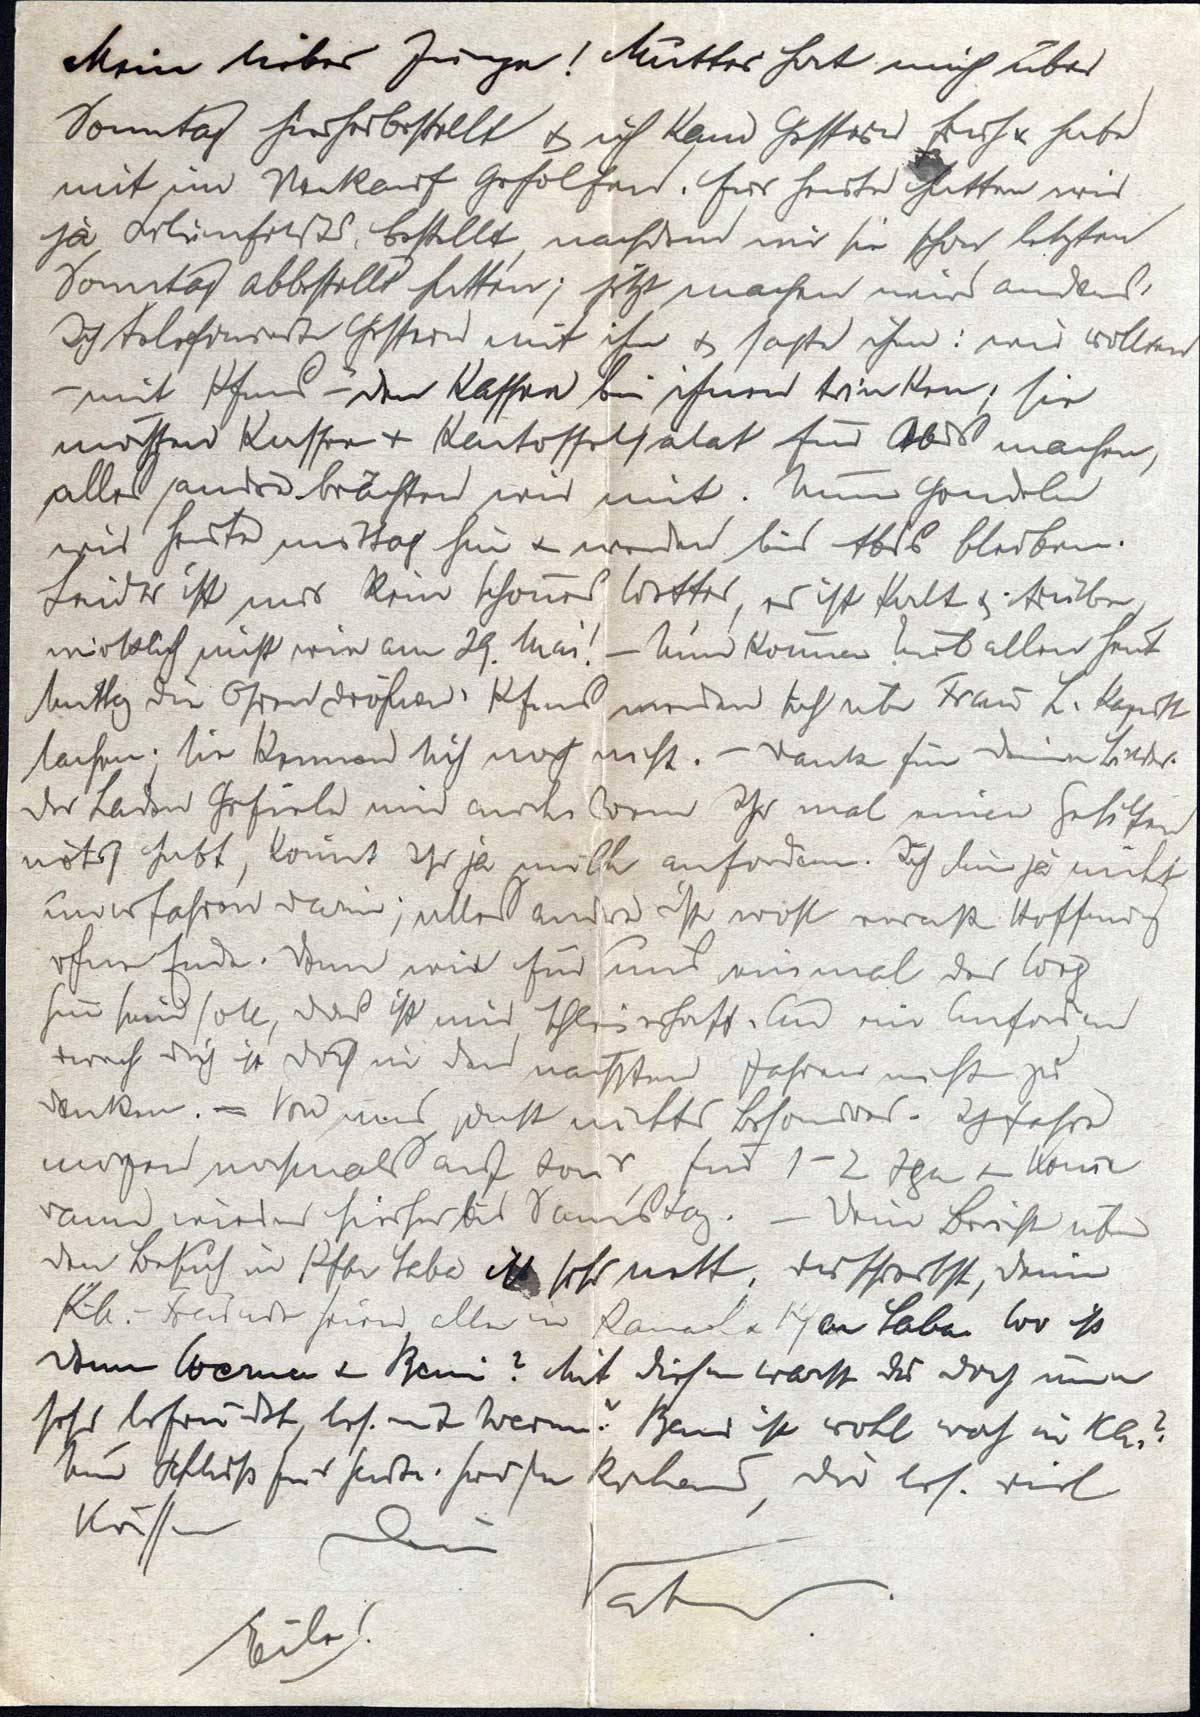 Mein lieber Junge! Mutter hat mich über
Sonntag hierherbestellt & ich kam Gestern früh & habe
mit im Verkauf Geholfen. Für heute hatten wir
ja bestellt, nachdem wir sie schon letzten
Sonntag abbestellt hatten; jetzt machen wirs anders.
Ich telefonierte Gestern mit ihr & sagte ihr: wir wollten
– mit – den Kaffee bei ihnen trinken; sie
möchten Kaffee & Kartoffelsalat für Abds machen,
alles andre brächten wir mit. Nun Gondeln
wir heute mittag hin & werden bis Abds bleiben.
Leider ist nur kein schönes Wetter, es ist kalt & trübe,
wirklich nicht wie am 29. Mai! – Nun können Euch allen heut
Mittg die Ohren dröhnen. werden sich über Frau L. kaputt
lachen; sie kennen sich noch nicht. – Dank für Deinen Brief.
Der Laden Gefiele mir auch. Wenn Ihr mal einen Gehilfen
nötig habt, könnt Ihr ja mich anfordern. Ich bin ja nicht
unerfahren darin; alles andre ist wohl Hoffnung
ohne Ende. Wenn wir für uns einmal der Weg
hin sein soll, das ist mir schleierhaft. An ein Anfordern
durch Dich ist doch in den nächsten Jahren nicht zu
denken. – Von uns sonst nichts Besonderes. Ich fahre
morgen nochmals auf Tour, für 1–2 Tge & komme
dann wieder hierher bis Samstag. – Dein Bericht über
den Besuch in Kfar Saba ist sehr nett. Du schreibst, Deine
Freunde seien alle in & Kfar Saba. Wo ist
denn Werner & Beni? Mit diesen warst Du doch immer
sehr befreundet, bes. mit Werner? Beni ist wohl noch in
Nun Schluss für heute. Grüsse Du bes. viel
Küssen Dein
Vater.
Eile!